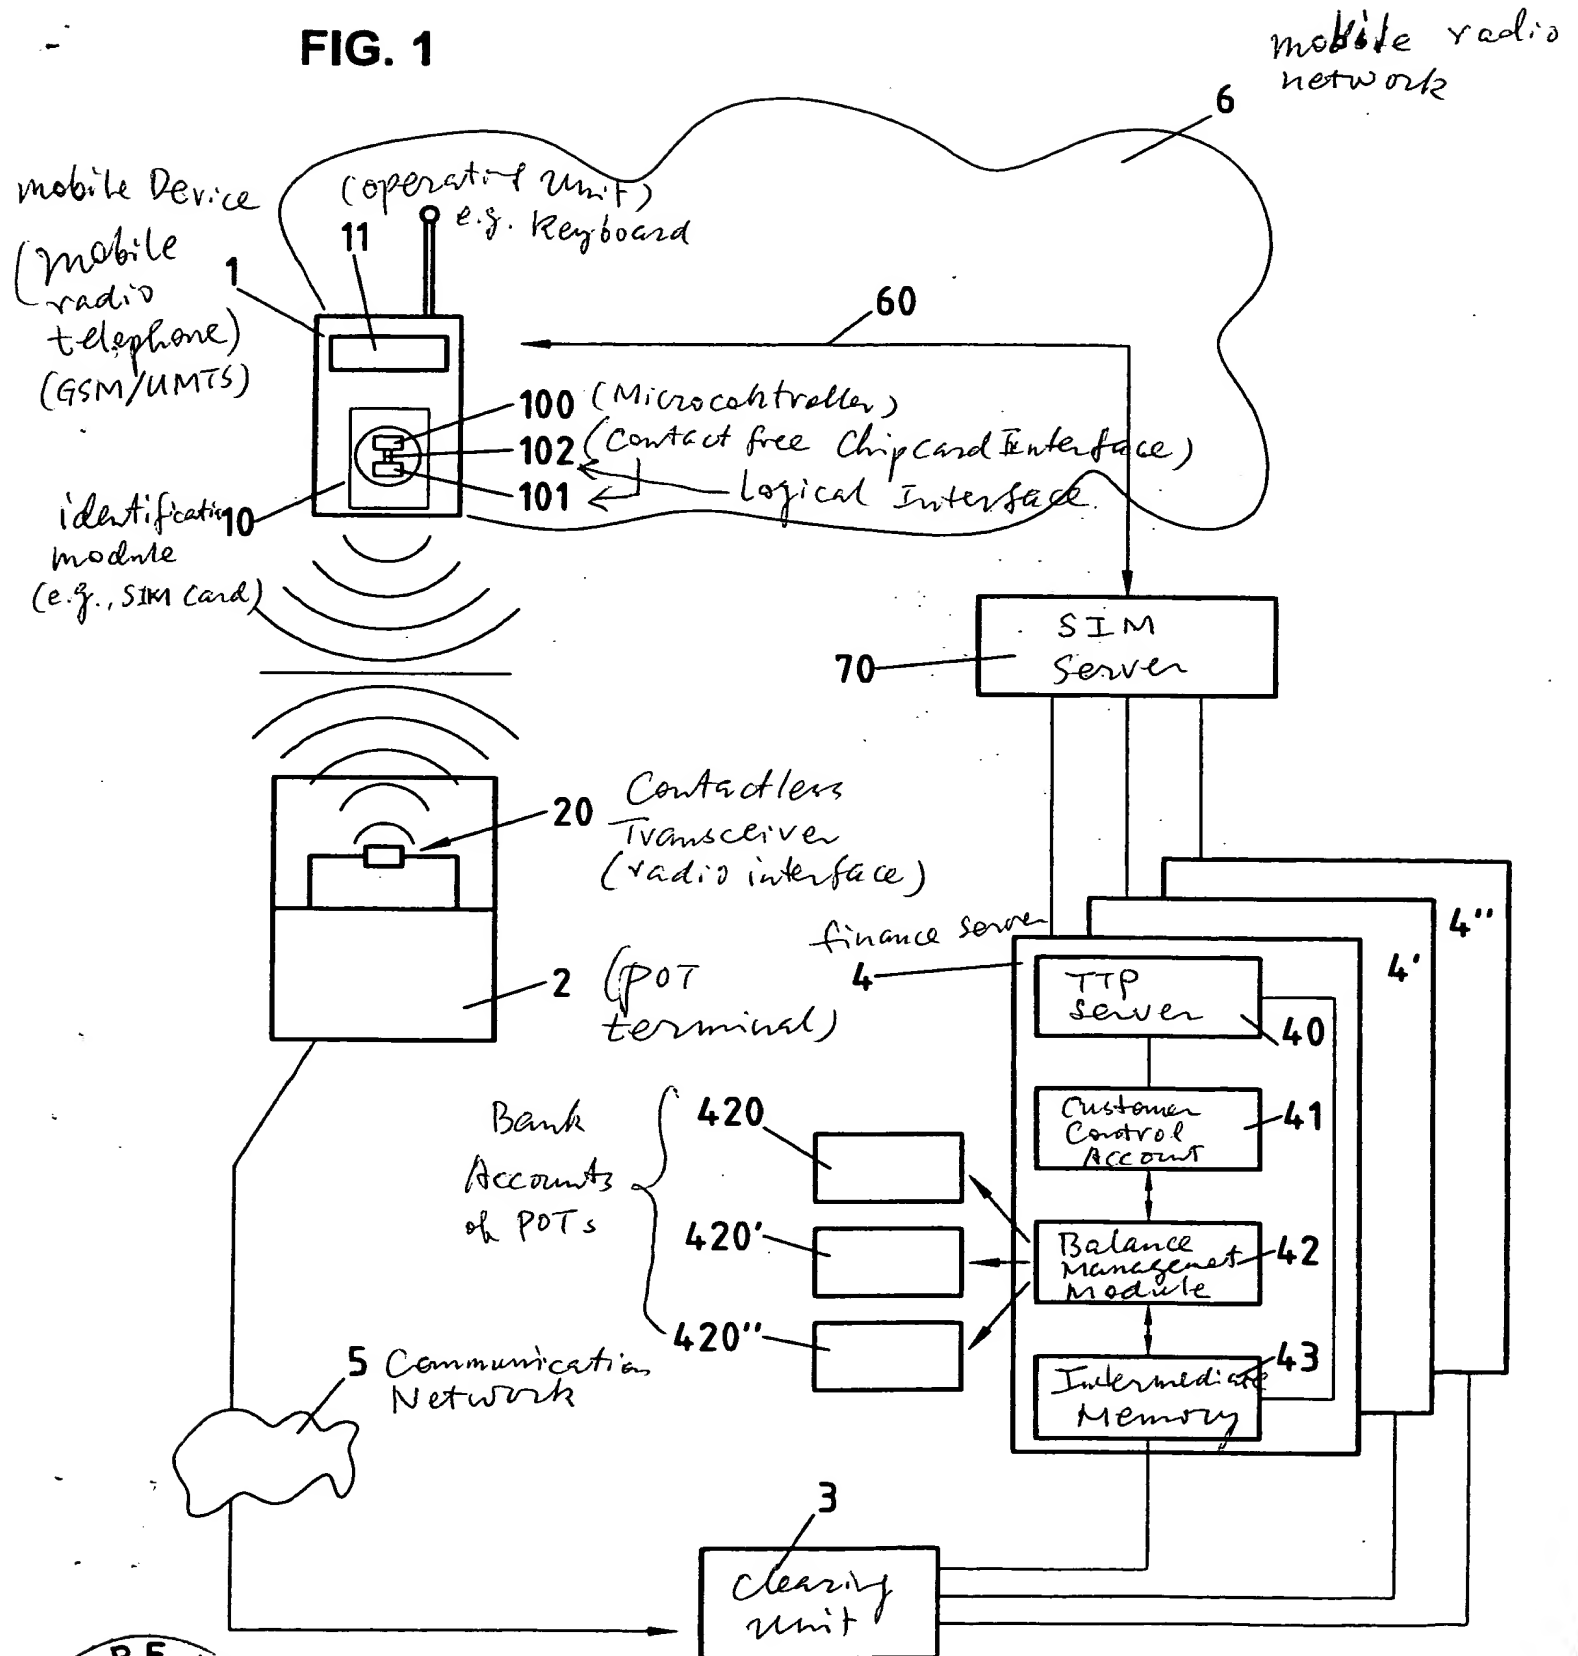 FIG. 1
mobile radio
network
6
mobile Device
(mobile
radio
telephone)
(GSM/UMTS)
1
(operating unit)
e.g. Keyboard
11
60
100 (Microcontroller)
102 (Contact free Chipcard Interface)
101
Logical Interface
identification
module
(e.g., SIM card)
10
SIM
Server
70
20
Contactless
Transceiver
(radio interface)
2 (POT
terminal)
finance server
4
4'
4''
TTP
Server
40
Customer
Control
Account
41
Balance
Managemet
Module
42
Intermediate
Memory
43
Bank
Accounts
of POTs
420
420'
420''
5 Communication
Network
3
Clearing
unit